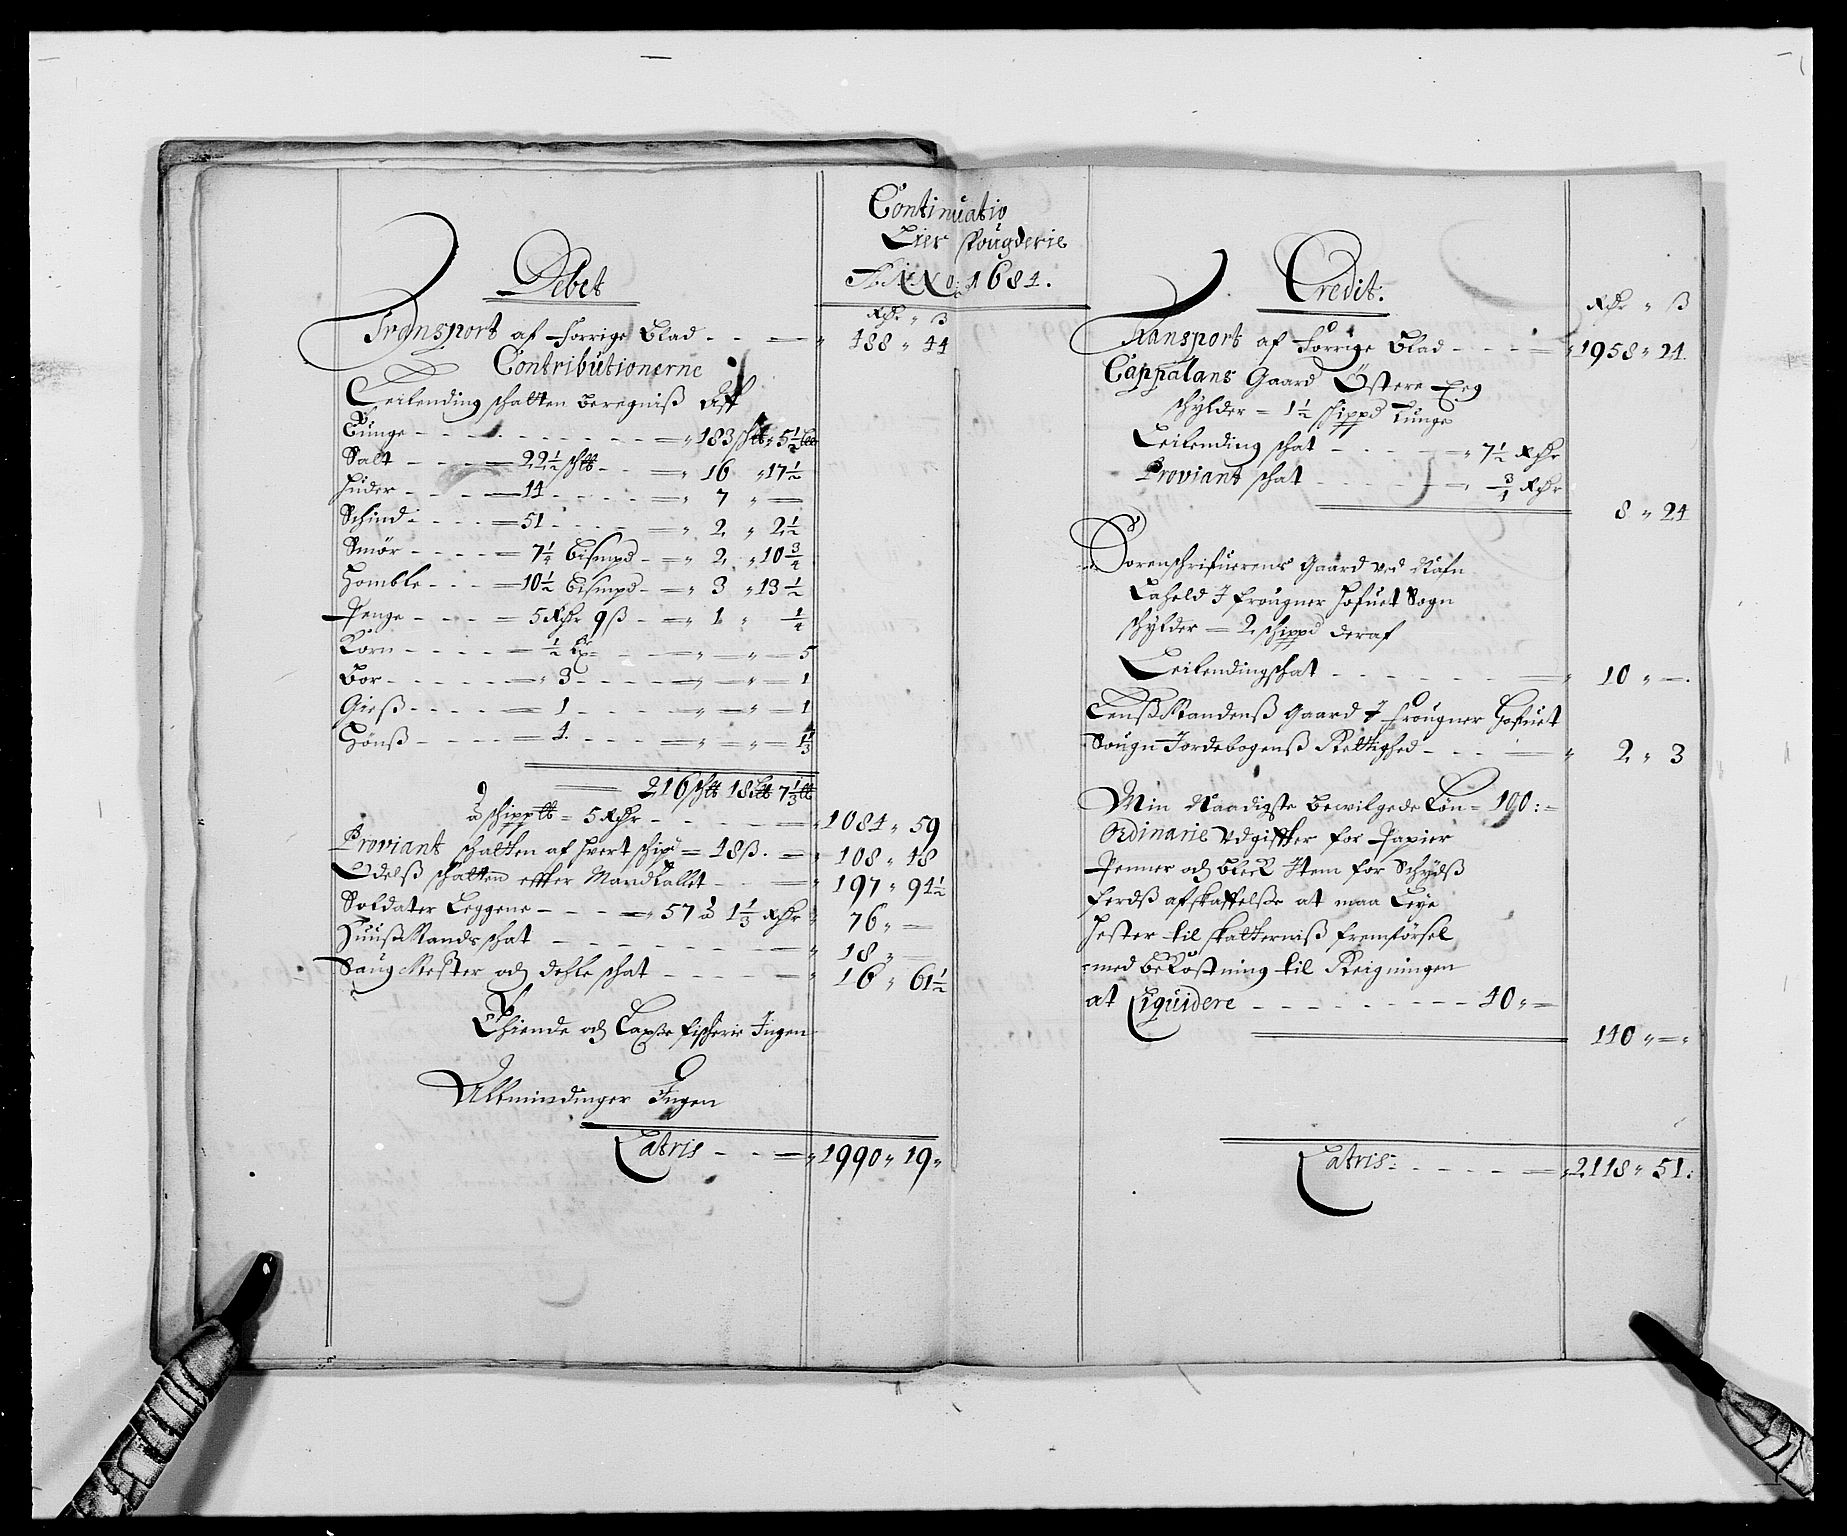 Continuatio
Lier fougderie
Anno: 1684.
Debet
Rdr " ß
Transport af forrige Blad - - - " 488 " 44
Contributionerne
Leilending schatten beregniß Aff
Tunge - - - " 183 schtt " 5½
Salt - - - 22½ schtt - - " 16 " 17½
Huder - - - 14 - - - " 7 " —
Schind - - - 51 - - - " 2 " 2½
Smør - - - 7¼ Bismpd - " 2 " 10¾
Homble - - - 10½ Bismpd - " 3 " 13½
Penge - - - 5 Rdr 9 ß - " 1 " ¼
Korn - - - ½ - - - " — " — 5
Bor - - - " 3 - - - " — " — 1
Gieß - - - 1 - - - " — " — 1
Hønß - - - 4 - - - " — " — ⅓
216 schtt 18 Ltt 7⅓ tt
à schipptt = 5 Rdr - - - " 1084 " 59
Proviant schatten af hvert schip = 48 ß. - " 108 " 48
Odelß schatten effter Mandtallet - - - " 197 " 94½
Soldater Leggene - - - " 57 à 1⅓ Rdr " 76 " —
Huußmands schat - - - " 18 " —
Saug Mester och dehle schat - - - " 16 " 61½
Thiende och Laxe fischerie Ingen
Allmindinger Ingen
Latris - - - " 1990 " 19 "
Credit:
Rdr " ß
Transport af Forrige Blad - - - " 1958 " 24
Cappalans Gaard Østere Eeg
schylder = 1½ schippd tunge
Leilending schat - - - " 7½ Rdr
Proviant schat - - - " ¾ Rdr
8 " 24
Sorenschrifuerens Gaard ved Nafn
Laheld J frougner Hofuet Sogn
schylder = 2 schippd deraf
Leilendingschat - - - " 10 " —
Lenßmandenß Gaard J frougner Hofuet
Sougn Jordebogenß Rettighed - - - " 2 " 3
Min Naadigste bewilgede Løn = 100 : =
Ordinarie Vdgiffter for Papier
Penner och Bleck Item for Schydß
ferdß afskaffelse at maa Leye
Hester til skatterniß fremførsel
med bekostning til Reigningen
at Liquidere - - - 40 " =
140 " — "
Latris: - - - " 2118 " 51 :